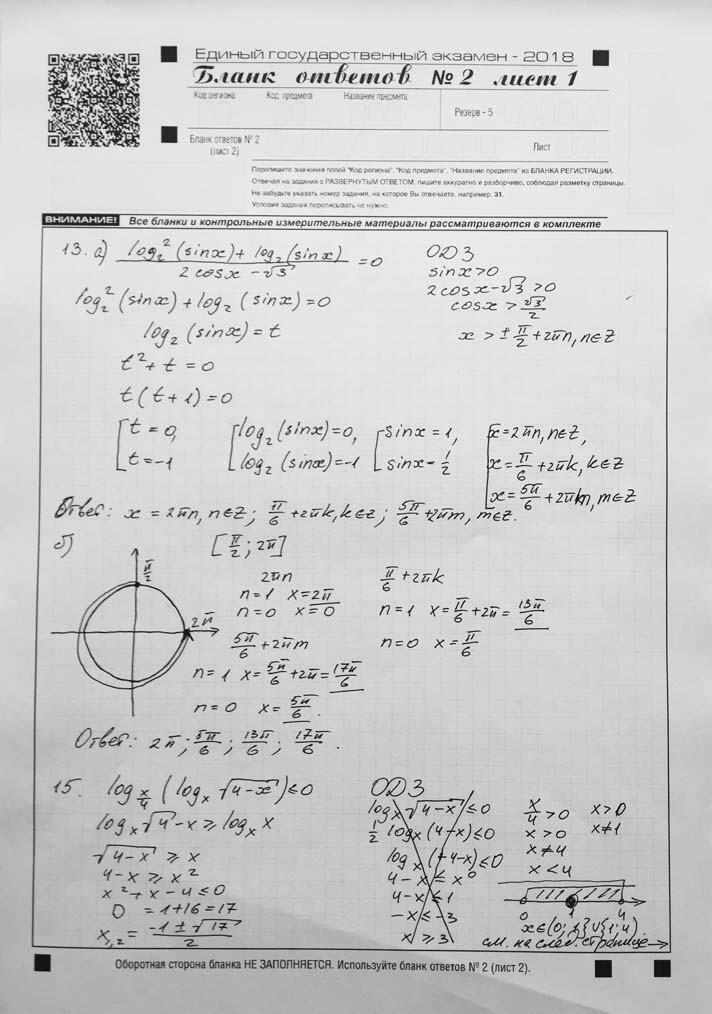 Единый государственный экзамен - 2018
Бланк ответов № 2 лист 1
Код региона Код предмета Название предмета
Резерв - 5
Бланк ответов № 2 (лист 2)
Лист
Перепишите значения полей "Код региона", "Код предмета", "Название предмета" из БЛАНКА РЕГИСТРАЦИИ.
Отвечая на задания с РАЗВЕРНУТЫМ ОТВЕТОМ, пишите аккуратно и разборчиво, соблюдая разметку страницы.
Не забудьте указать номер задания, на которое Вы отвечаете, например, 31.
Условия задания переписывать не нужно.
ВНИМАНИЕ! Все бланки и контрольные измерительные материалы рассматриваются в комплекте
13. а) (log₂²(sinx) + log₂(sinx)) / (2cosx - √3) = 0
log₂²(sinx) + log₂(sinx) = 0
log₂(sinx) = t
t² + t = 0
t(t + 1) = 0
[t = 0, t = -1
[log₂(sinx) = 0, log₂(sinx) = -1
[sinx = 1, sinx = 1/2
[x = 2πn, n∈Z,
x = π/6 + 2πk, k∈Z
x = 5π/6 + 2πm, m∈Z
ОДЗ
sinx > 0
2cosx - √3 > 0
cosx > √3/2
x > ± π/2 + 2πn, n∈Z
Ответ: x = 2πn, n∈Z; π/6 + 2πk, k∈Z; 5π/6 + 2πm, m∈Z.
б) [π/2; 2π]
π/2
2π
2πn
n = 1 x = 2π
n = 0 x = 0
π/6 + 2πk
n = 1 x = π/6 + 2π = 13π/6
n = 0 x = π/6
5π/6 + 2πm
n = 1 x = 5π/6 + 2π = 17π/6
n = 0 x = 5π/6.
Ответ: 2π; 5π/6; 13π/6; 17π/6.
15. log_{x/4}(log_x √4-x) ≤ 0
log_x √4-x ≥ log_x x
√4-x ≥ x
4-x ≥ x²
x² + x - 4 ≤ 0
D = 1 + 16 = 17
x₁,₂ = (-1 ± √17)/2
ОДЗ
log_x √4-x ≤ 0
1/2 log_x (4-x) ≤ 0
log_x (4-x) ≤ 0
4-x ≤ x⁰
4-x ≤ 1
-x ≤ -3
x ≥ 3
x/4 > 0 x > 0
x > 0 x ≠ 1
x ≠ 4
x < 4
0 1 4
x∈(0; 1}∪{1; 4).
см. на след. странице →
Оборотная сторона бланка НЕ ЗАПОЛНЯЕТСЯ. Используйте бланк ответов № 2 (лист 2).